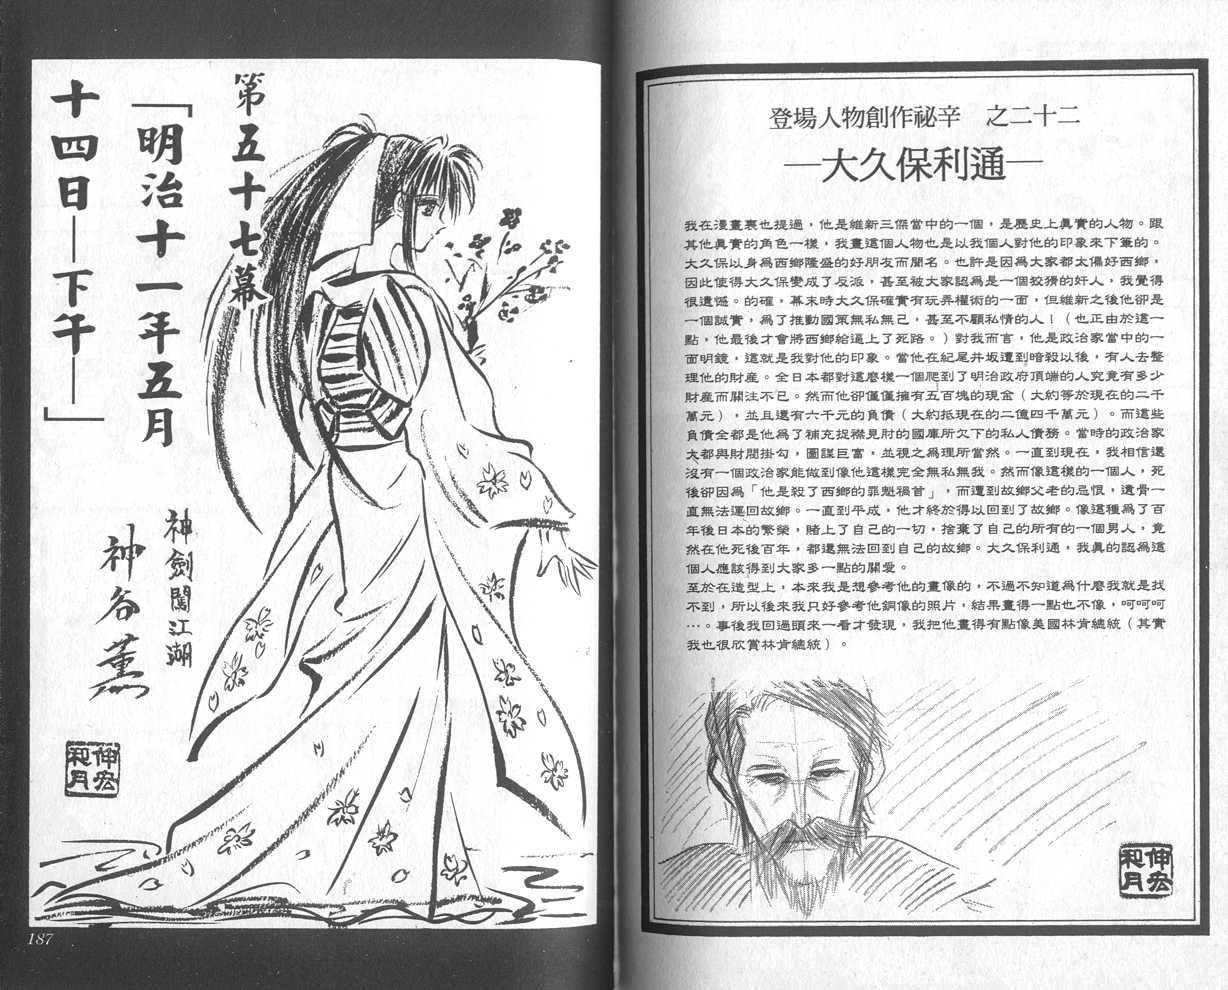 登場人物創作祕辛　之二十二
—大久保利通—
我在漫畫裏也提過，他是維新三傑當中的一個，是歷史上眞實的人物。跟
其他眞實的角色一樣，我畫這個人物也是以我個人對他的印象來下筆的。
大久保以身爲西鄉隆盛的好朋友而聞名。也許是因爲大家都太偏好西鄉，
因此使得大久保變成了反派，甚至被大家認爲是一個狡猾的奸人，我覺得
很遺憾。的確，幕末時大久保確實有玩弄權術的一面，但維新之後他卻是
一個誠實，爲了推動國策無私無己，甚至不顧私情的人！（也正由於這一
點，他最後才會將西鄉給逼上了死路。）對我而言，他是政治家當中的一
面明鏡，這就是我對他的印象。當他在紀尾井坂遭到暗殺以後，有人去整
理他的財產。全日本都對這麼樣一個爬到了明治政府頂端的人究竟有多少
財產而關注不已。然而他卻僅僅擁有五百塊的現金（大約等於現在的二千
萬元），並且還有六千元的負債（大約抵現在的二億四千萬元）。而這些
負債全都是他爲了補充捉襟見肘的國庫所欠下的私人債務。當時的政治家
大都與財閥掛勾，圖謀巨富，並視之爲理所當然。一直到現在，我相信還
沒有一個政治家能做到像他這樣完全無私無我。然而像這樣的一個人，死
後卻因爲「他是殺了西鄉的罪魁禍首」，而遭到故鄉父老的忌恨，遺骨一
直無法運回故鄉。一直到平成，他才終於得以回到了故鄉。像這種爲了百
年後日本的繁榮，賭上了自己的一切，捨棄了自己的所有的一個男人，竟
然在他死後百年，都還無法回到自己的故鄉。大久保利通，我眞的認爲這
個人應該得到大家多一點的關愛。
至於在造型上，本來我是想參考他的畫像的，不過不知道爲什麼我就是找
不到，所以後來我只好參考他銅像的照片，結果畫得一點也不像，呵呵呵
…。事後我回過頭來一看才發現，我把他畫得有點像美國林肯總統（其實
我也很欣賞林肯總統）。
伸宏
和月
第五十七幕
「明治十一年五月
十四日——下午——」
神劍闖江湖
神谷薰
伸宏
和月
187